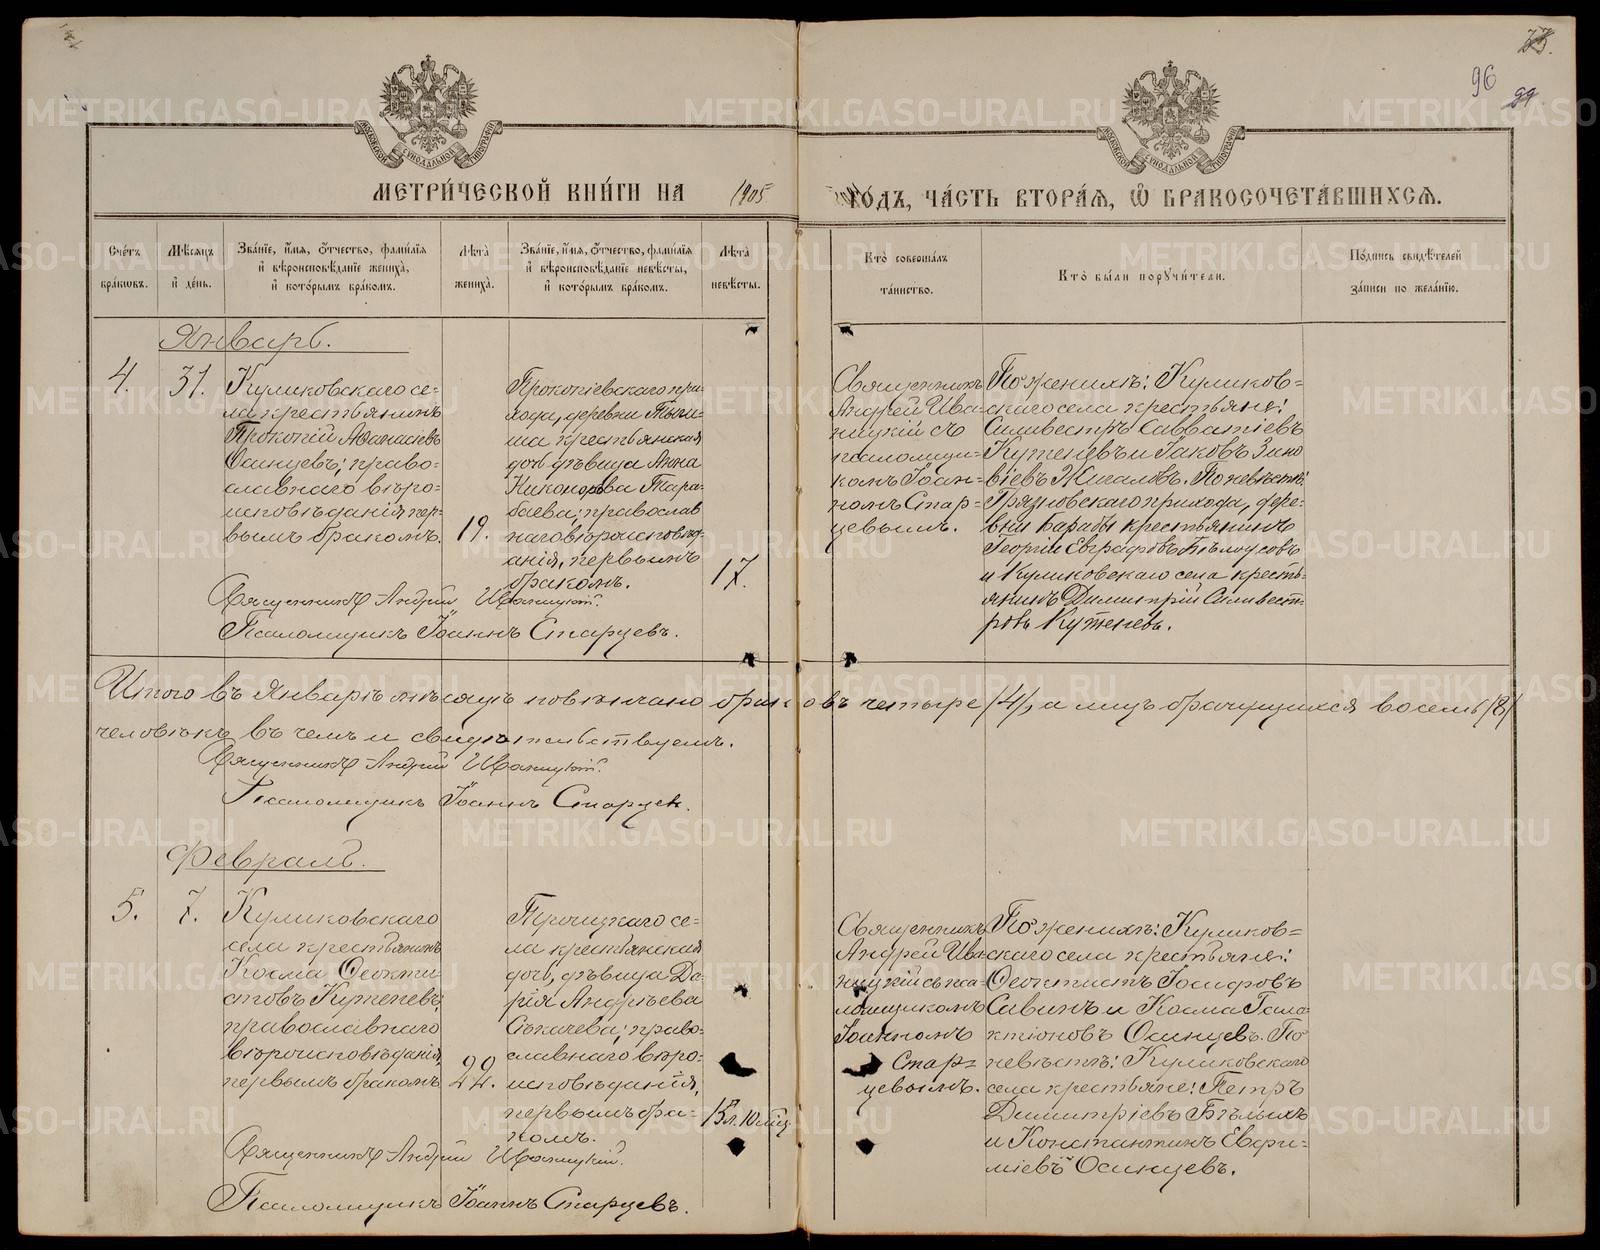 96
МЕТРИЧЕСКОЙ КНИГИ НА 1905 ГОДЪ, ЧАСТЬ ВТОРАЯ, Ѡ БРАКОСОЧЕТАВШИХСЯ.
МОСКОВСКОЙ СѴНОДАЛЬНОЙ ТИПОГРАФІИ
МОСКОВСКОЙ СѴНОДАЛЬНОЙ ТИПОГРАФІИ
Счетъ браковъ.
Мѣсяцъ и день.
Званіе, имя, отчество, фамилія и вѣроисповѣданіе жениха, и которымъ бракомъ.
Лѣта жениха.
Званіе, имя, отчество, фамилія и вѣроисповѣданіе невѣсты, и которымъ бракомъ.
Лѣта невѣсты.
Кто совершалъ таинство.
Кто были поручители.
Подпись свидѣтелей записи по желанію.
Январь.
4.
31.
Куликовскаго се=
ла крестьянинъ
Прокопій Аѳанасіевъ
Осинцевъ; право=
славнаго вѣро=
исповѣданія, пер=
вымъ бракомъ.
19.
Прокопіевскаго при=
хода, деревни
крестьянская
дочь дѣвица Анна
Никонорова Тара=
баева; православ
наго вѣроисповѣд=
анія, первымъ
бракомъ.
17.
Священникъ
Андрей Ива=
ницкій съ
псаломщи=
комъ Іоан=
номъ Стар=
цевымъ.
По женихѣ: Куликов=
скаго села крестьяне:
Силивестръ Савватіевъ
Кутеневъ и Іаковъ Зино
віевъ Жигаловъ. По невѣстѣ:
Грязновскаго прихода, дере=
вни Барабы крестьянинъ
Георгій Евграфовъ Бѣлоусовъ
и Куликовскаго села кресть=
янинъ Димитрій Силивест=
ровъ Кутеневъ.
Священникъ Андрей Иваницкій.
Псаломщикъ Іоаннъ Старцевъ.
Итого въ Январѣ мѣсяцѣ повѣнчано браковъ четыре /4/, а лицъ брачущихся восемь /8/
человѣкъ въ чемъ и свидѣтельствуемъ.
Священникъ Андрей Иваницкій.
Псаломщикъ Іоаннъ Старцев.
Февраль.
5.
7.
Куликовскаго
села крестьянинъ
Косма Ѳеокти
стовъ Кутеневъ;
православнаго
вѣроисповѣданія,
первымъ бракомъ
22.
Троицкаго се=
ла крестьянская
дочь, дѣвица Да=
рія Андрѣева
право=
славнаго вѣро=
исповѣданія,
первымъ бра=
комъ.
Священникъ
Андрей Ива=
ницкій съ пса=
ломщикомъ
Іоанномъ
Стар=
цевымъ.
По женихѣ: Куликов=
скаго села крестьяне:
Ѳеоктистъ Іосифовъ
Савинъ и Косма Гала
ктіоновъ Осинцевъ. По
невѣстѣ: Куликовскаго
села крестьяне: Петръ
Димитріевъ Бѣлыхъ
и Константинъ Евфи=
міевъ Осинцевъ.
Священникъ Андрей Иваницкій.
Псаломщикъ Іоаннъ Старцевъ.
METRIKI.GASO-URAL.RU